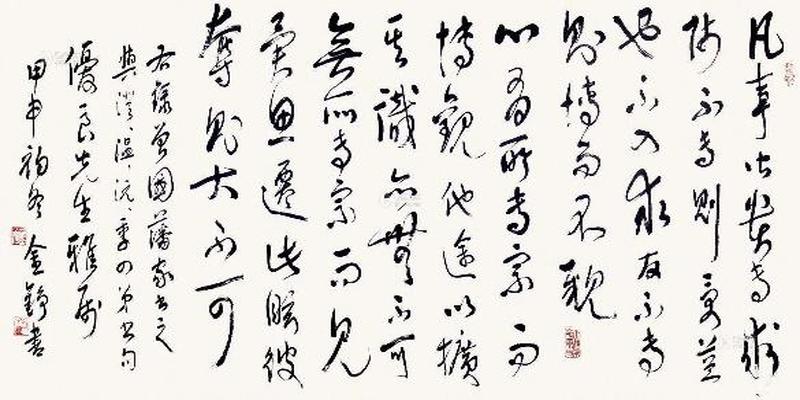 凡事皆貴專求
師不專則受益
也不入求友不專
則博而不親
心有所專宗而
博觀他途以擴
其識亦無不可
無所專宗而見
異思遷此眩彼
奪則大不可
右錄曾國藩家書之
與澄、溫、沅、季四弟書句
優良先生雅屬
甲申初冬 金錚書